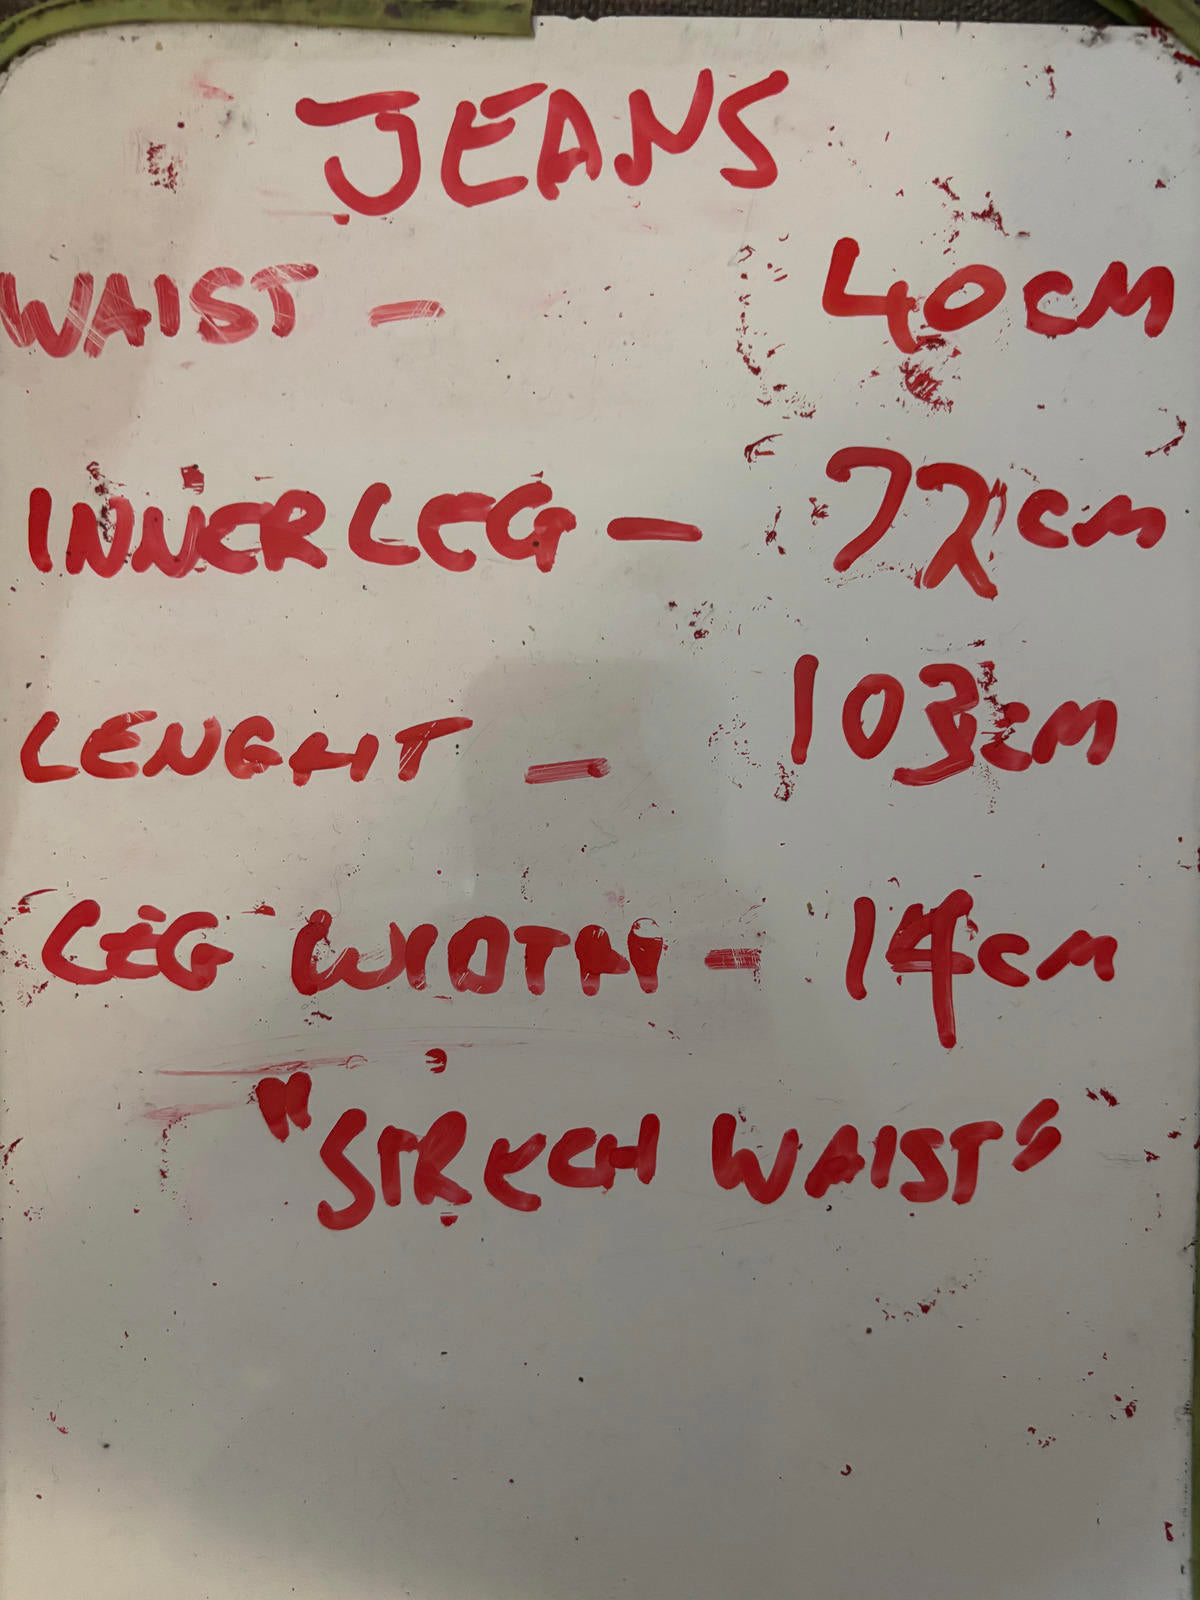 JEANS
WAIST - 40CM
INNER LEG - 72CM
LENGHT - 103CM
LEG WIDTH - 14CM
"STRECH WAIST"